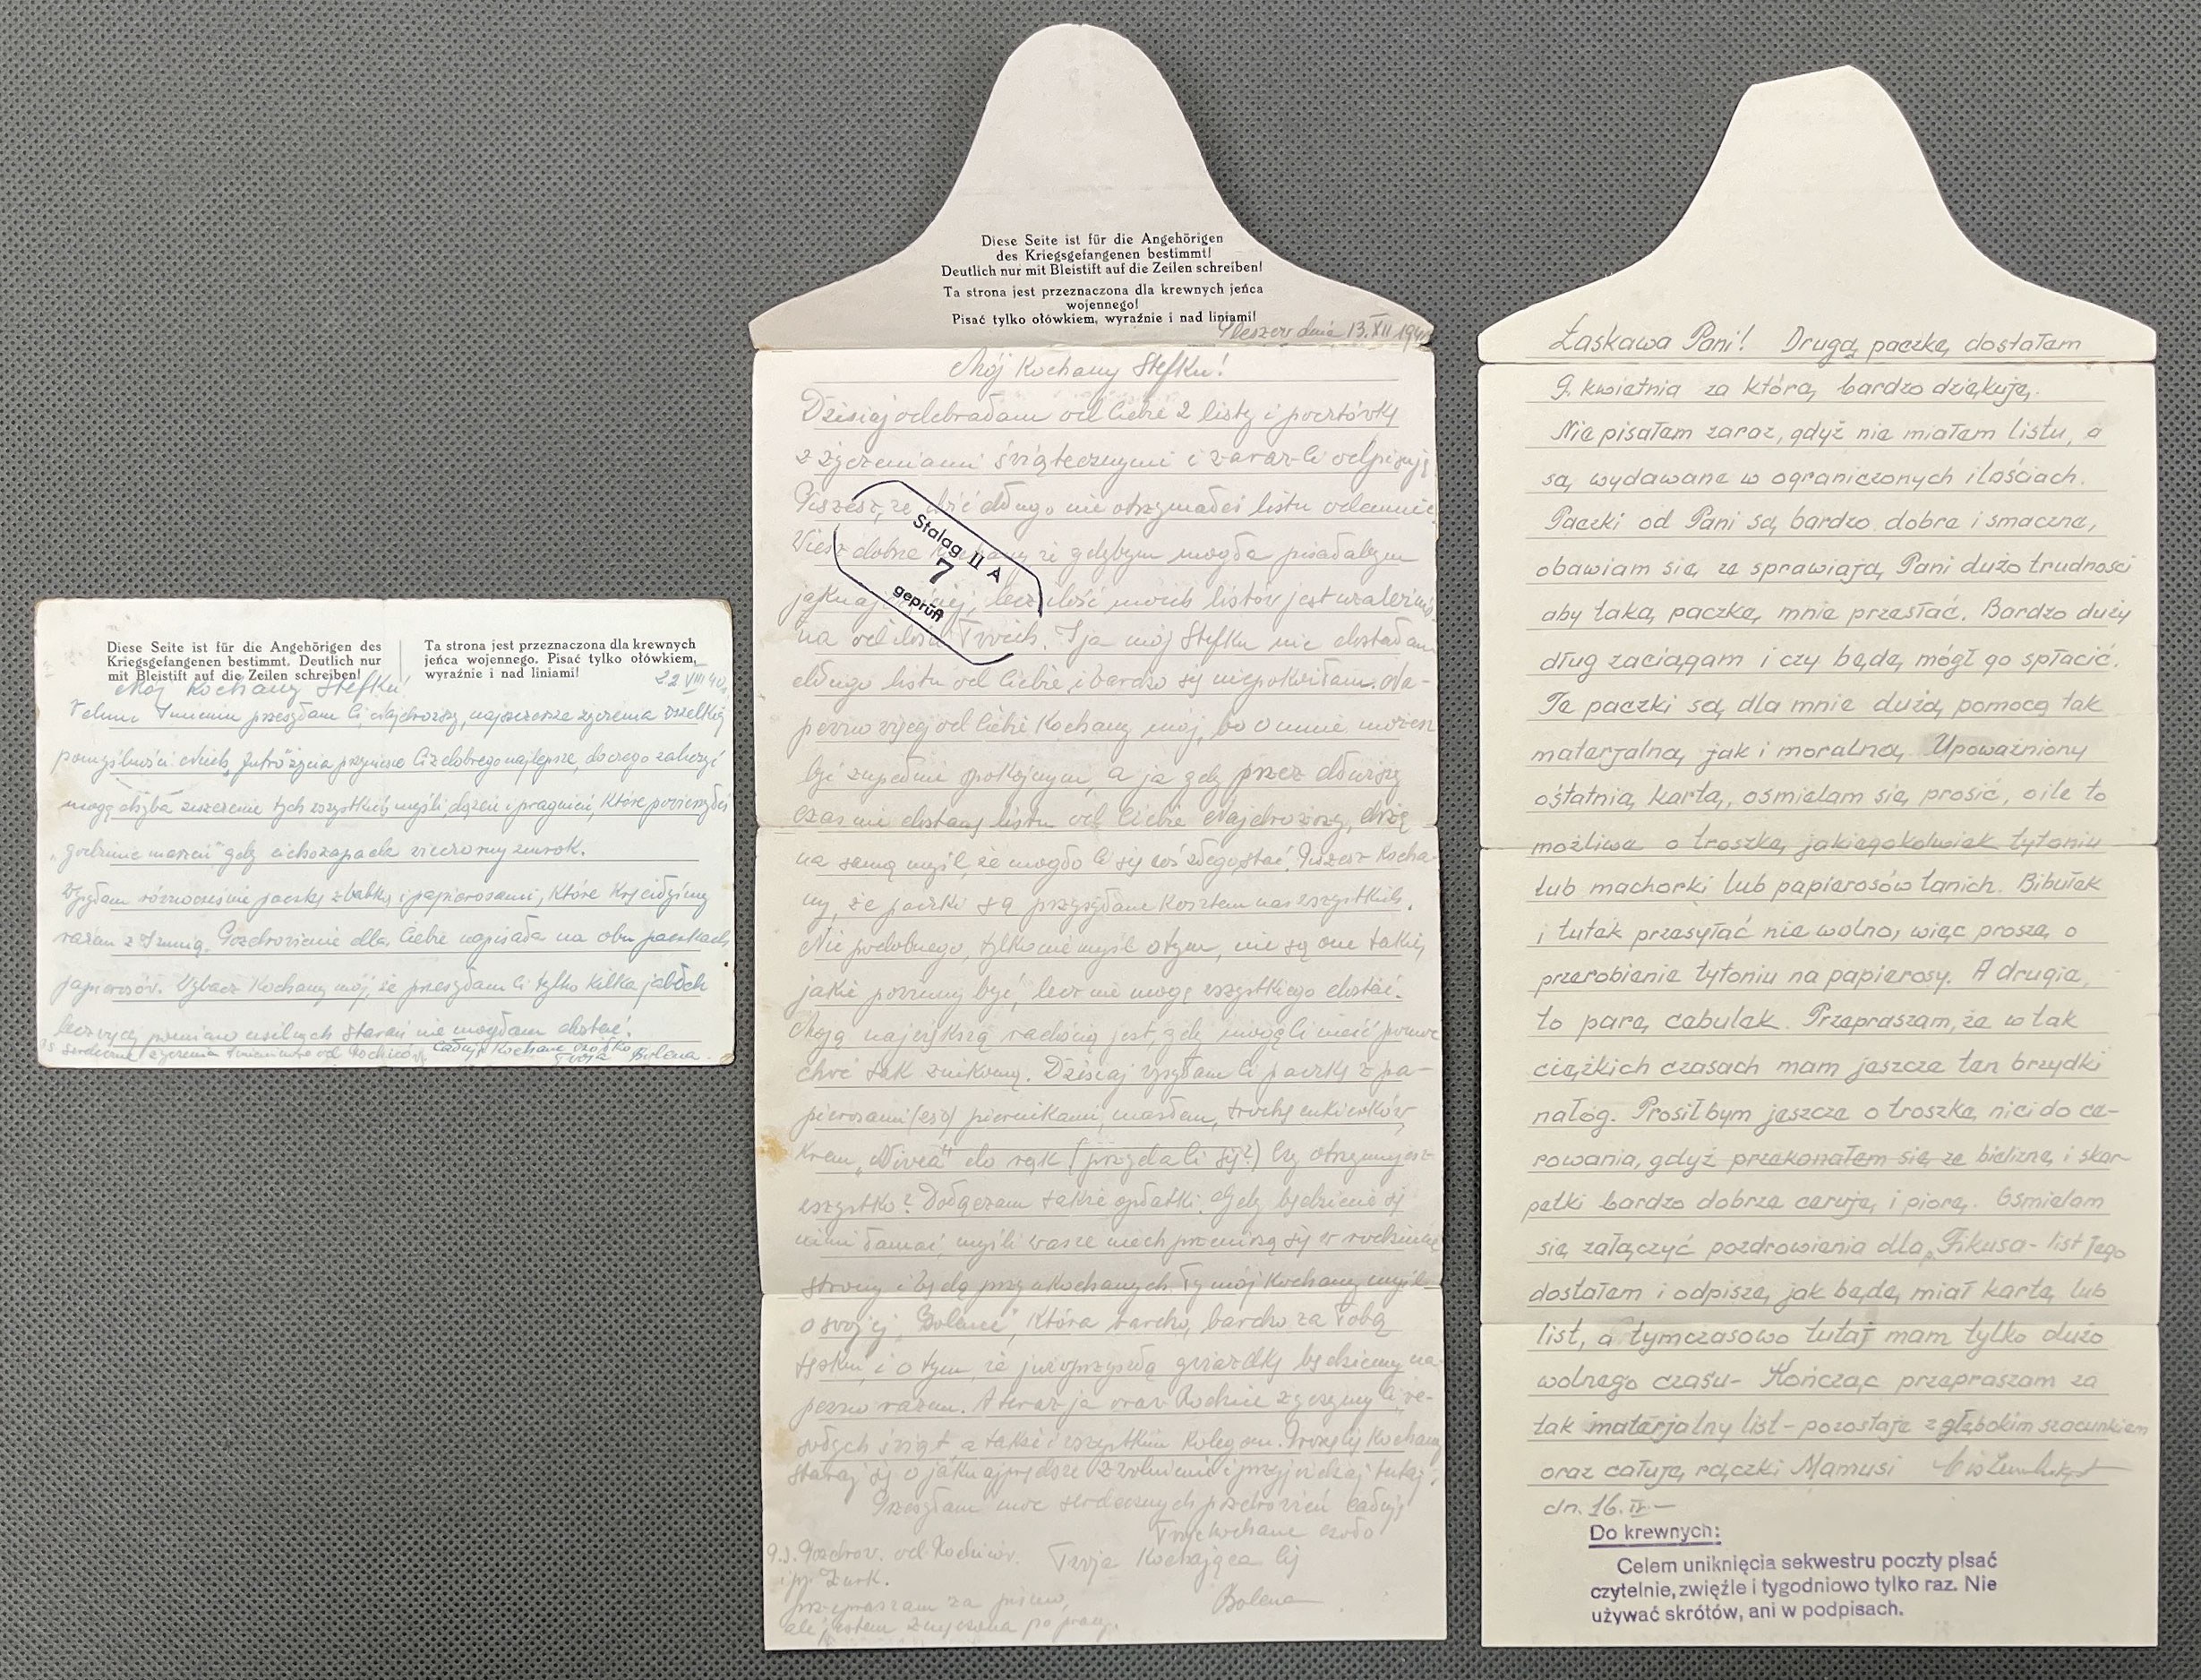 Diese Seite ist für die Angehörigen des
Kriegsgefangenen bestimmt. Deutlich nur
mit Bleistift auf die Zeilen schreiben!
Ta strona jest przeznaczona dla krewnych
jeńca wojennego. Pisać tylko ołówkiem,
wyraźnie i nad liniami!
22 VIII 40
Mój Kochany Stefku!
Imienin przesyłam Ci, Najdroższy, najszczersze życzenia wszelkiej
pomyślności. Niech Jutro życia przyniesie Ci z dobrego najlepsze, do czego zaliczyć
mogę chyba ziszczenie tych wszystkich myśli, dążeń i pragnień, które
"godzinie marzeń" gdy cicho zapada wieczorny zmrok.
Wysyłam równocześnie paczkę z babką i papierosami, które
razem z Pozdrowienie dla Ciebie napisała na obu paczkach
papierosów. Wybacz Kochany mój, że przesyłam Ci tylko kilka jabłek
lecz więcej pomimo usilnych starań nie mogłam dostać.
serdeczne życzenia imieninowe od Rodziców. Całuję Kochane
Twoja Bolena.
Diese Seite ist für die Angehörigen
des Kriegsgefangenen bestimmt!
Deutlich nur mit Bleistift auf die Zeilen schreiben!
Ta strona jest przeznaczona dla krewnych jeńca
wojennego!
Pisać tylko ołówkiem, wyraźnie i nad liniami!
Pleszew dnia 13.XII 194
Mój Kochany Stefku!
Dzisiaj odebrałam od Ciebie 2 listy i pocztówkę
z życzeniami świątecznymi i zaraz Ci odpisuję
Piszesz, że dość długo nie otrzymałeś listu odemnie.
Wiesz dobrze Kochany że gdybym mogła pisałabym
lecz ilość moich listów jest uzależniona
na od ilości Twoich. I ja mój Stefku nie dostałam
długo listu od Ciebie i bardzo się niepokoiłam. Na-
pewno więcej od Ciebie Kochany mój, bo o mnie możesz
być zupełnie spokojnym, a ja gdy przez dłuższy
czas nie dostanę listu od Ciebie Najdroższy, drżę
na samą myśl, że mogło Ci się coś złego stać. Piszesz Kocha-
ny, że paczki są przysyłane kosztem nas wszystkich.
Nic podobnego, tylko nie myśl o tym, nie są one takie,
jakie powinny być, lecz nie mogę wszystkiego dostać.
Moją największą radością jest, gdy mogę Ci nieść pomoc
choć tak znikomą. Dzisiaj wysyłam Ci paczkę z pa-
pierosami piernikami, masłem, trochę cukierków,
krem "Nivea" do rąk (przyda Ci się?) Czy otrzymujesz
wszystko? Dołączam także opłatki. Gdy będziecie się
nimi łamać, myśli wasze niech przeniosą się w rodzinne
strony i będą przy ukochanych. Ty mój Kochany myśl
o swojej "Bolence", która bardzo, bardzo za Tobą
tęskni, i o tym, że już w przyszłą gwiazdkę będziemy na-
pewno razem. A teraz ja oraz Rodzice życzymy Ci we-
sołych świąt, a także i wszystkim kolegom. Proszę Cię Kochany
staraj się o jaknajprędsze zwolnienie i przyjeżdżaj tutaj.
Przesyłam moc serdecznych pozdrowień całuję
Twe kochane czoło
Twoja Kochająca Cię
Bolena
P.S. Pozdrow. od Rodziców.
i pp. Żurk.
przepraszam za pismo,
ale jestem zmęczona po pracy.
Stalag II A
7
geprüft
Łaskawa Pani! Drugą paczkę dostałem
9 kwietnia za którą bardzo dziękuję.
Nie pisałem zaraz, gdyż nie miałem listu, a
są wydawane w ograniczonych ilościach.
Paczki od Pani są bardzo dobre i smaczne,
obawiam się że sprawiają Pani dużo trudności
aby taką paczkę mnie przesłać. Bardzo duży
dług zaciągam i czy będę mógł go spłacić.
Te paczki są dla mnie dużą pomocą tak
materjalną jak i moralną. Upoważniony
ostatnią kartą, ośmielam się prosić, o ile to
możliwe o troszkę jakiegokolwiek tytoniu
lub machorki lub papierosów tanich. Bibułek
i tutek przesyłać nie wolno, więc proszę o
przerobienie tytoniu na papierosy. A drugie,
to parę cebulek. Przepraszam, że w tak
ciężkich czasach mam jeszcze ten brzydki
nałog. Prosiłbym jeszcze o troszkę nici do ce-
rowania, gdyż przekonałem się że bieliznę i skar-
petki bardzo dobrze ceruję i piorę. Ośmielam
się załączyć pozdrowienia dla "Fikusa - list Jego
dostałem i odpiszę jak będę miał kartę lub
list, a tymczasowo tutaj mam tylko dużo
wolnego czasu - Kończąc przepraszam za
tak materjalny list - pozostaję z głębokim szacunkiem
oraz całuję rączki Mamusi
dn. 16. IV -
Do krewnych:
Celem uniknięcia sekwestru poczty pisać
czytelnie, zwięźle i tygodniowo tylko raz. Nie
używać skrótów, ani w podpisach.